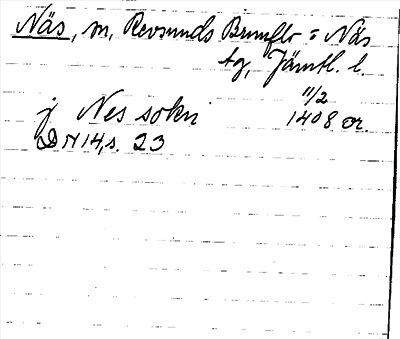 Näs, m, Revsunds Brunflo o Näs
tg, Jämtl. l.
j Nes sokn 11/2 1408 or.
DN 14, s. 23